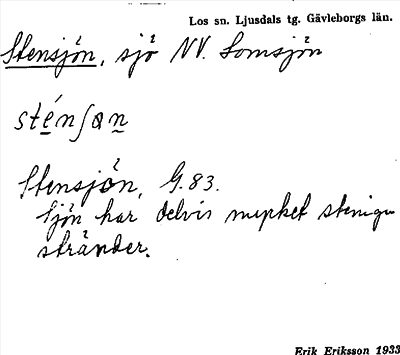 Los sn. Ljusdals tg. Gävleborgs län.
Stensjön, sjö NV. Lomsjön
sténʃa̲n̲
Stensjön, G. 83.
Sjön har delvis mycket steniga
stränder.
Erik Eriksson 1933